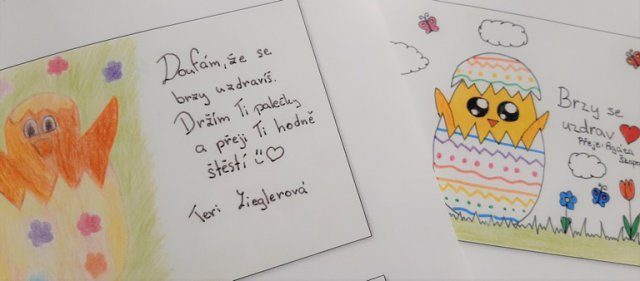 Doufám, že se
brzy uzdravíš.
Držím Ti palečky
a přeji Ti hodně
štěstí
Teri Zieglerová
Brzy se
uzdrav
Přeje: Agáta